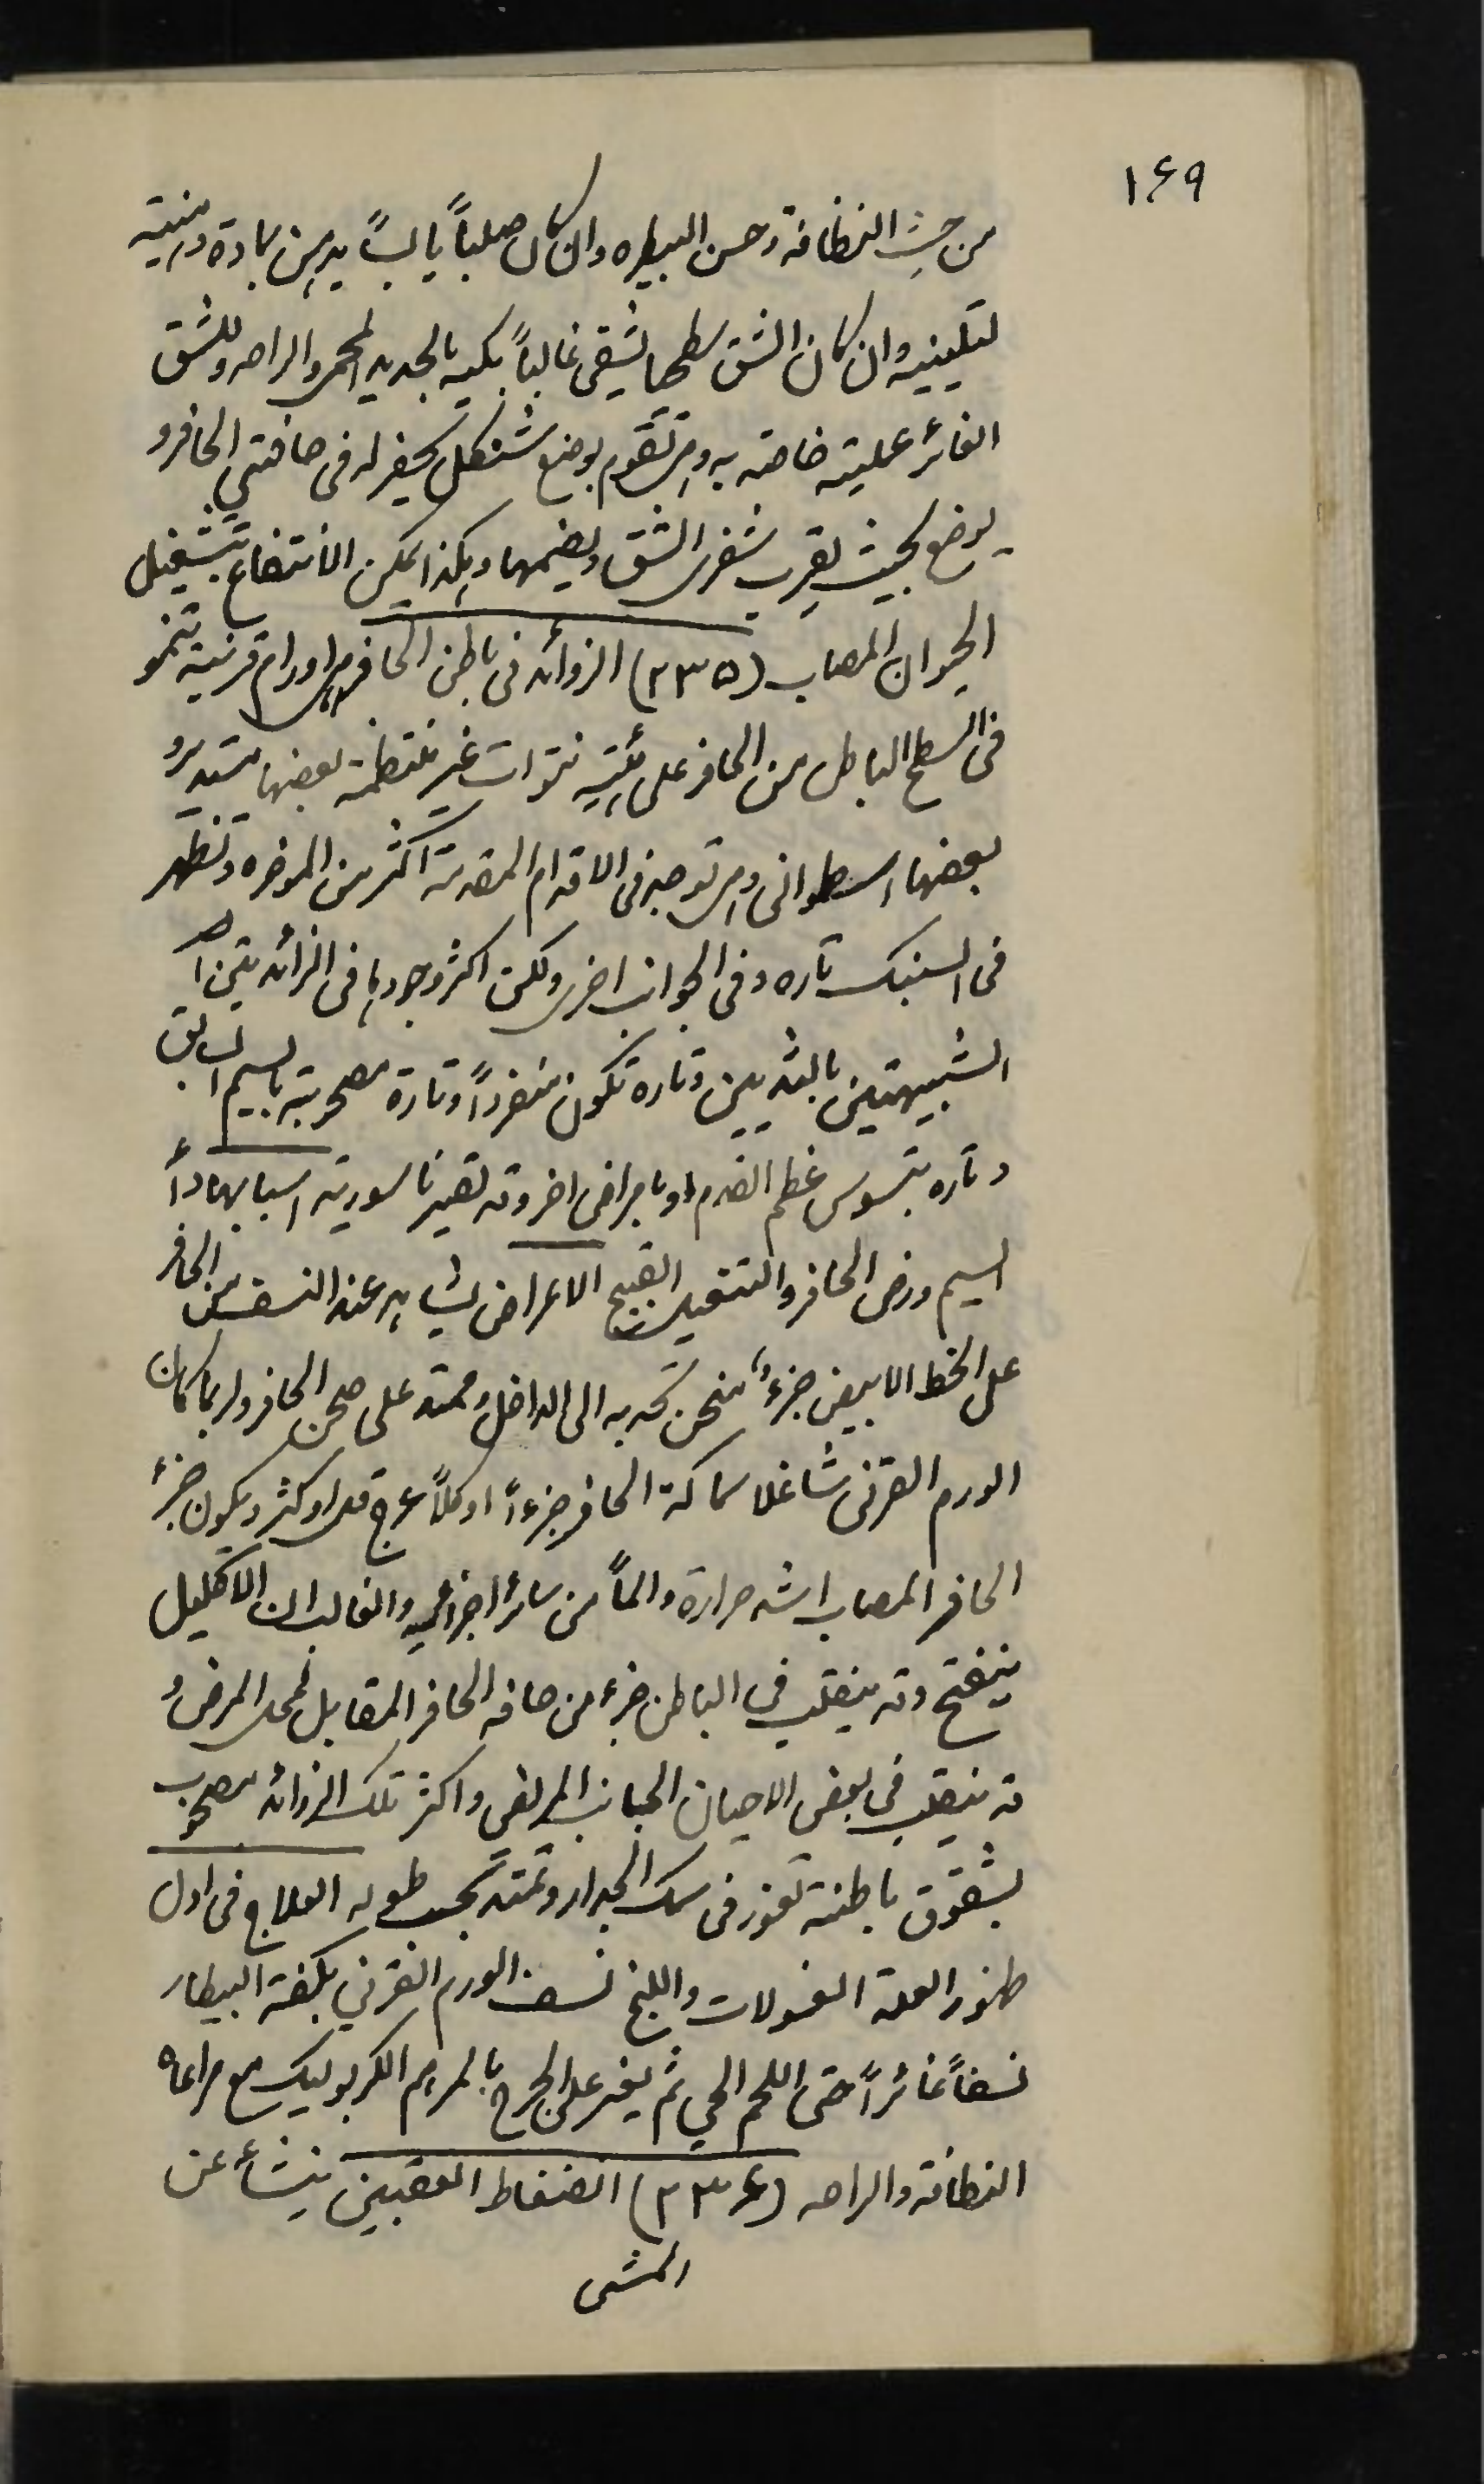 ۱۶۹
من حيث النظافة وحسن البيطره وان كان صلباً يابساً يدهن بمادة دهنية
لتليينه وان كان الشق سطحيا يشقى غالباً بكيه بالحديد المحمر والراحه وللشق
الغائر عملية خاصة به وهى تقوم بوضع شنكل يحفر له فى حافتي الحافر و
يوضع بحيث يقرب شفرى الشق ويضمهما وهكذا يمكن الانتفاع بتشغيل
الحيوان المصاب (۲۳۵) الزوائد فى باطن الحافر هى اورام قرنية تنمو
فى السطح الباطن من الحافر على هيئة نتوات غير منتظمة بعضها مستدير و
بعضها اسطوانى وهى توجد فى الاقدام المقدمة اكثر من المؤخره وتظهر
فى السنبك تاره وفى الجوانب اخرى ولكن اكثر وجودها فى الزائدتين
الشبيهتين بالثديين وتاره تكون منفرداً وتارة مصحوبة بالسيم السابق
وتاره بتسوس عظم القدم او بامراض اخر وقد تصير ناسورية اسبابها داء
السيم ورض الحافر والتنعيل القبيح الاعراض يشاهد عند النسف من الحافر
على الخط الابيض جزء منحن تحدبه الى الداخل وممتد على صحن الحافر ولربما كان
الورم القرنى شاغلا سماكة الحافر جزءاً او كلاً عرج قل او كثر ويكون جزء
الحافر المصاب اشد حرارة والماً من سائر اجزائه والغالب ان الاكليل
ينفتح وقد ينقلب في الباطن جزء من حافه الحافر المقابل لمحل المرض و
قد ينقلب فى بعض الاحيان الجانب المرضى واكثر تلك الزوائد مصحوب
بشقوق باطنة تغور فى سمك الجدار وتمتد بحسب طوله العلاج فى اول
ظهور العلة الغسولات واللبخ نسف الورم القرني بكفة البيطار
نسفاً غائراً حتى اللحم الحي ثم يغير على الجرح بالمرهم الكربوليك مع مراعاه
النظافة والراحه (۲۳۶) انضغاط العقبين ينشأ عن
المشى